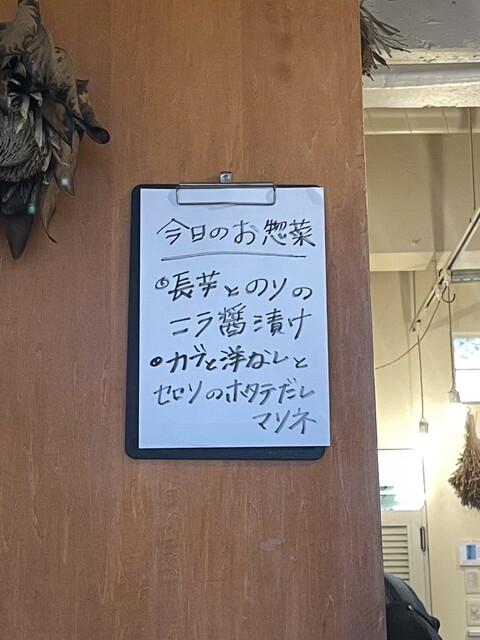 今日のお惣菜
長芋とのりの
ニラ醤漬け
カブと洋なしと
セロリのホタテだし
マリネ